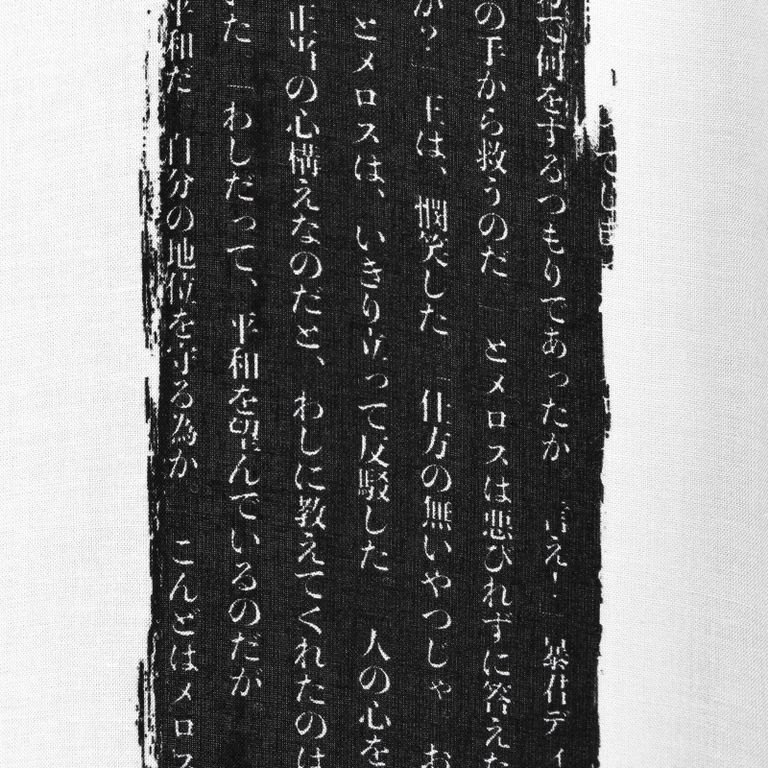 で何をするつもりであったか。言え！」暴君ディ
の手から救うのだ。」とメロスは悪びれずに答えた
か？」王は、憫笑した。「仕方の無いやつじゃ。お
とメロスは、いきり立って反駁した。人の心を
正当の心構えなのだと、わしに教えてくれたのは
た。「わしだって、平和を望んでいるのだが
平和だ。自分の地位を守る為か。こんどはメロス